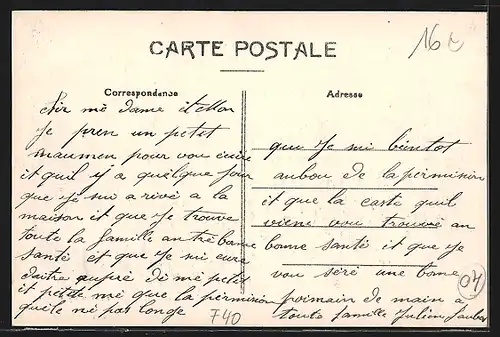 CARTE POSTALE
16 e
Correspondance
Adresse
Air mè dame it
Je pren un petit
maumen pour vou écrire
it quil y a quelque four
que je sui a rivé a la
maison it que je trouve
toute la famille an trè bonne
santé it que je sui
aupré dè mè petit
it petite mè que la permision
quite ni pas longe
que je sui bientot
aubou de la permision
it que la carte quil
viene vou trouvé an
bonne santé it que je
vou séré une bone
poimain de main a
toute famille Julien
740
04